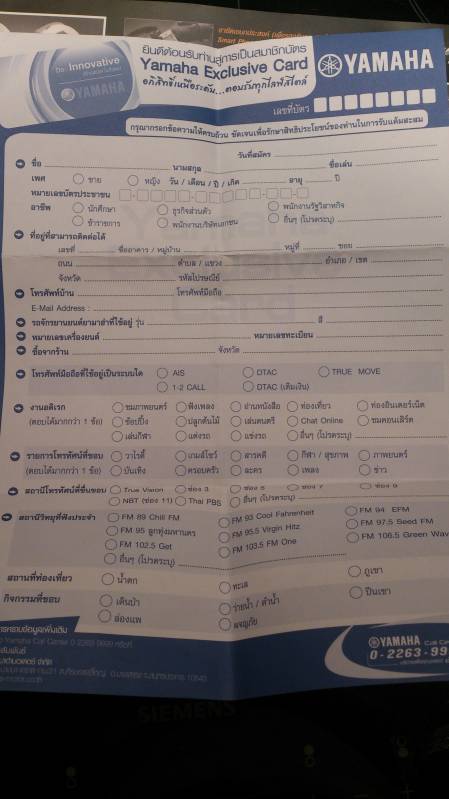 Be Innovative
YAMAHA
ยินดีต้อนรับท่านสู่การเป็นสมาชิกบัตร
Yamaha Exclusive Card
อภิสิทธิ์เหนือระดับ...ตอบรับทุกไลฟ์สไตล์
YAMAHA
เลขที่บัตร
กรุณากรอกข้อความให้ครบถ้วน ชัดเจนเพื่อรักษาสิทธิประโยชน์ของท่านในการรับแต้มสะสม
วันที่สมัคร
ชื่อ นามสกุล ชื่อเล่น
เพศ ชาย หญิง วัน / เดือน / ปี / เกิด อายุ ปี
หมายเลขบัตรประชาชน
อาชีพ นักศึกษา ธุรกิจส่วนตัว พนักงานรัฐวิสาหกิจ
ข้าราชการ พนักงานบริษัทเอกชน อื่นๆ (โปรดระบุ)
ที่อยู่ที่สามารถติดต่อได้
เลขที่ ชื่ออาคาร / หมู่บ้าน หมู่ที่ ซอย
ถนน ตำบล / แขวง อำเภอ / เขต
จังหวัด รหัสไปรษณีย์
โทรศัพท์บ้าน โทรศัพท์มือถือ
E-Mail Address :
รถจักรยานยนต์ยามาฮ่าที่ใช้อยู่ รุ่น สี
หมายเลขเครื่องยนต์ หมายเลขทะเบียน
ซื้อจากร้าน จังหวัด
โทรศัพท์มือถือที่ใช้อยู่เป็นระบบใด AIS DTAC TRUE MOVE
1-2 CALL DTAC (เติมเงิน)
งานอดิเรก ชมภาพยนตร์ ฟังเพลง อ่านหนังสือ ท่องเที่ยว ท่องอินเตอร์เน็ต
(ตอบได้มากกว่า 1 ข้อ) ช้อปปิ้ง ปลูกต้นไม้ เล่นดนตรี Chat Online ชมคอนเสิร์ต
เล่นกีฬา แต่งรถ แข่งรถ อื่นๆ (โปรดระบุ)
รายการโทรทัศน์ที่ชอบ วาไรตี้ เกมส์โชว์ สารคดี กีฬา / สุขภาพ ภาพยนตร์
(ตอบได้มากกว่า 1 ข้อ) บันเทิง ครอบครัว ละคร เพลง ข่าว
สถานีโทรทัศน์ที่ชื่นชอบ True Vision ช่อง 3 ช่อง 5 ช่อง 7 ช่อง 9
NBT (ช่อง 11) Thai PBS อื่นๆ (โปรดระบุ)
สถานีวิทยุที่ฟังประจำ FM 89 Chill FM FM 93 Cool Fahrenheit FM 94 EFM
FM 95 ลูกทุ่งมหานคร FM 95.5 Virgin Hitz FM 97.5 Seed FM
FM 102.5 Get FM 103.5 FM One FM 106.5 Green Wave
อื่นๆ (โปรดระบุ)
สถานที่ท่องเที่ยว น้ำตก ทะเล ภูเขา
กิจกรรมที่ชอบ เดินป่า ว่ายน้ำ / ดำน้ำ ปีนเขา
ล่องแพ ผจญภัย
YAMAHA
0-2263-99
SIEMENS